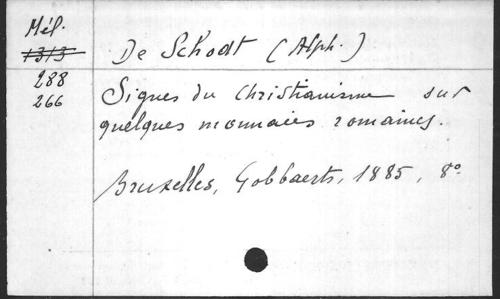 Mél.
1313
288
266
De Schodt (Alph.)
Signes du Christianisme sur
quelques monnaies romaines.
Bruxelles, Gobbaerts, 1885, 8°